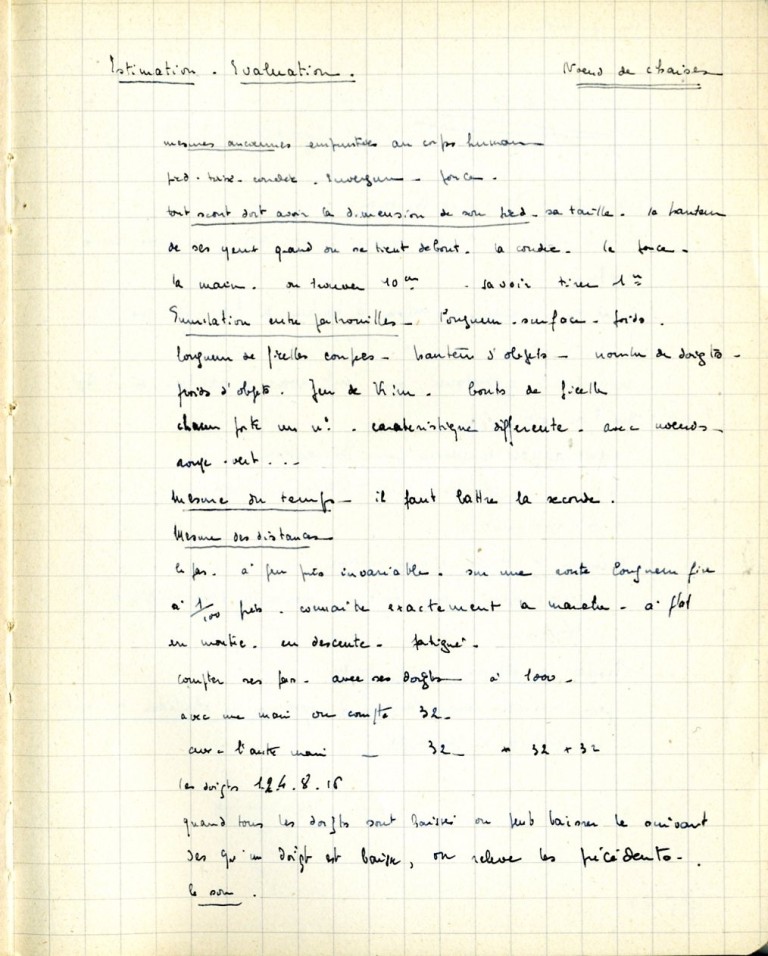 Estimation. Evaluation. Noeud de chaises
mesures anciennes empruntées au corps humain
pied. coudée. Envergure. force.
tout scout doit avoir la dimension de son pied. sa taille. la hauteur
de ses yeux quand on se tient debout. la coudée. la force.
la main. ou trouver 10 cm. savoir tirer 1 m
Emulation entre patrouilles. longueur. surface. poids.
longueur de ficelles coupées. hauteur d'objets. nombre de doigts.
poids d'objets. Jeu de Kim. bouts de ficelle
chacun porte un n°. caractéristique différente. avec noeuds.
rouge. vert...
Mesure du temps. il faut battre la seconde.
Mesure des distances
le pas. à peu près invariable. sur une route longueur fixe
à 1/100 près. connaitre exactement la marche. à plat
en montée. en descente. fatigué.
compter ses pas. avec ses doigts à 1000.
avec une main on compte 32.
avec l'autre main — 32. 32 + 32
les doigts 1.2.4.8.16
quand tous les doigts sont baissés on peut baisser le suivant
des qu'un doigt est baissé, on relève les précédents.
le son.